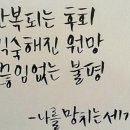 반복되는 후회
익숙해진 원망
끊임없는 불평
-나를 망치는 세가